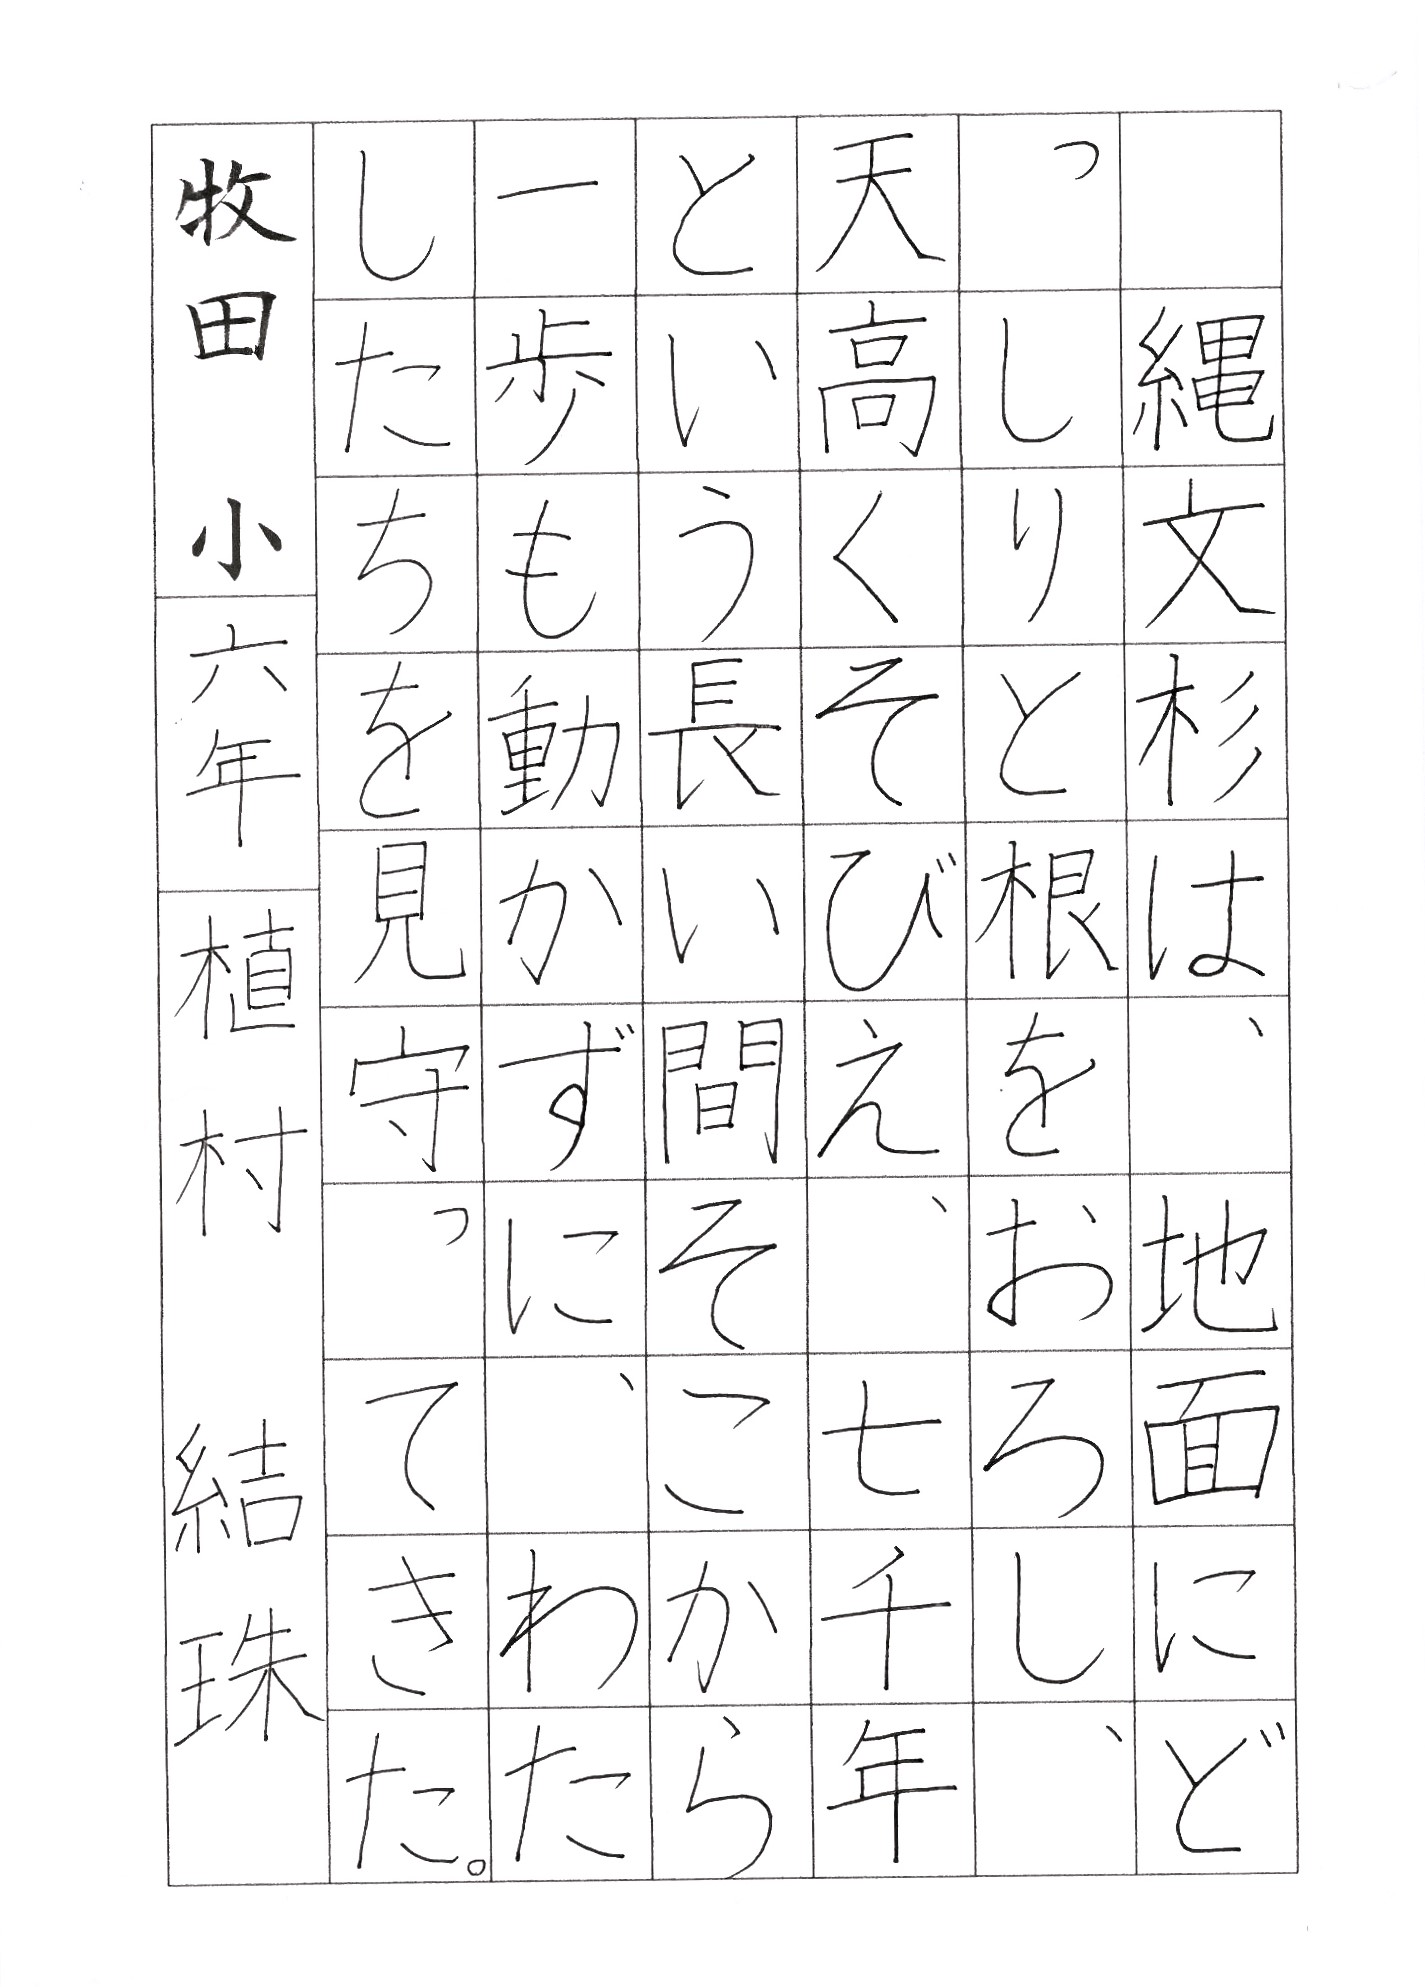 縄文杉は、地面にど
っしりと根をおろし、
天高くそびえ、七千年
という長い間そこから
一歩も動かずに、わた
したちを見守ってきた。
牧田小六年植村　結珠